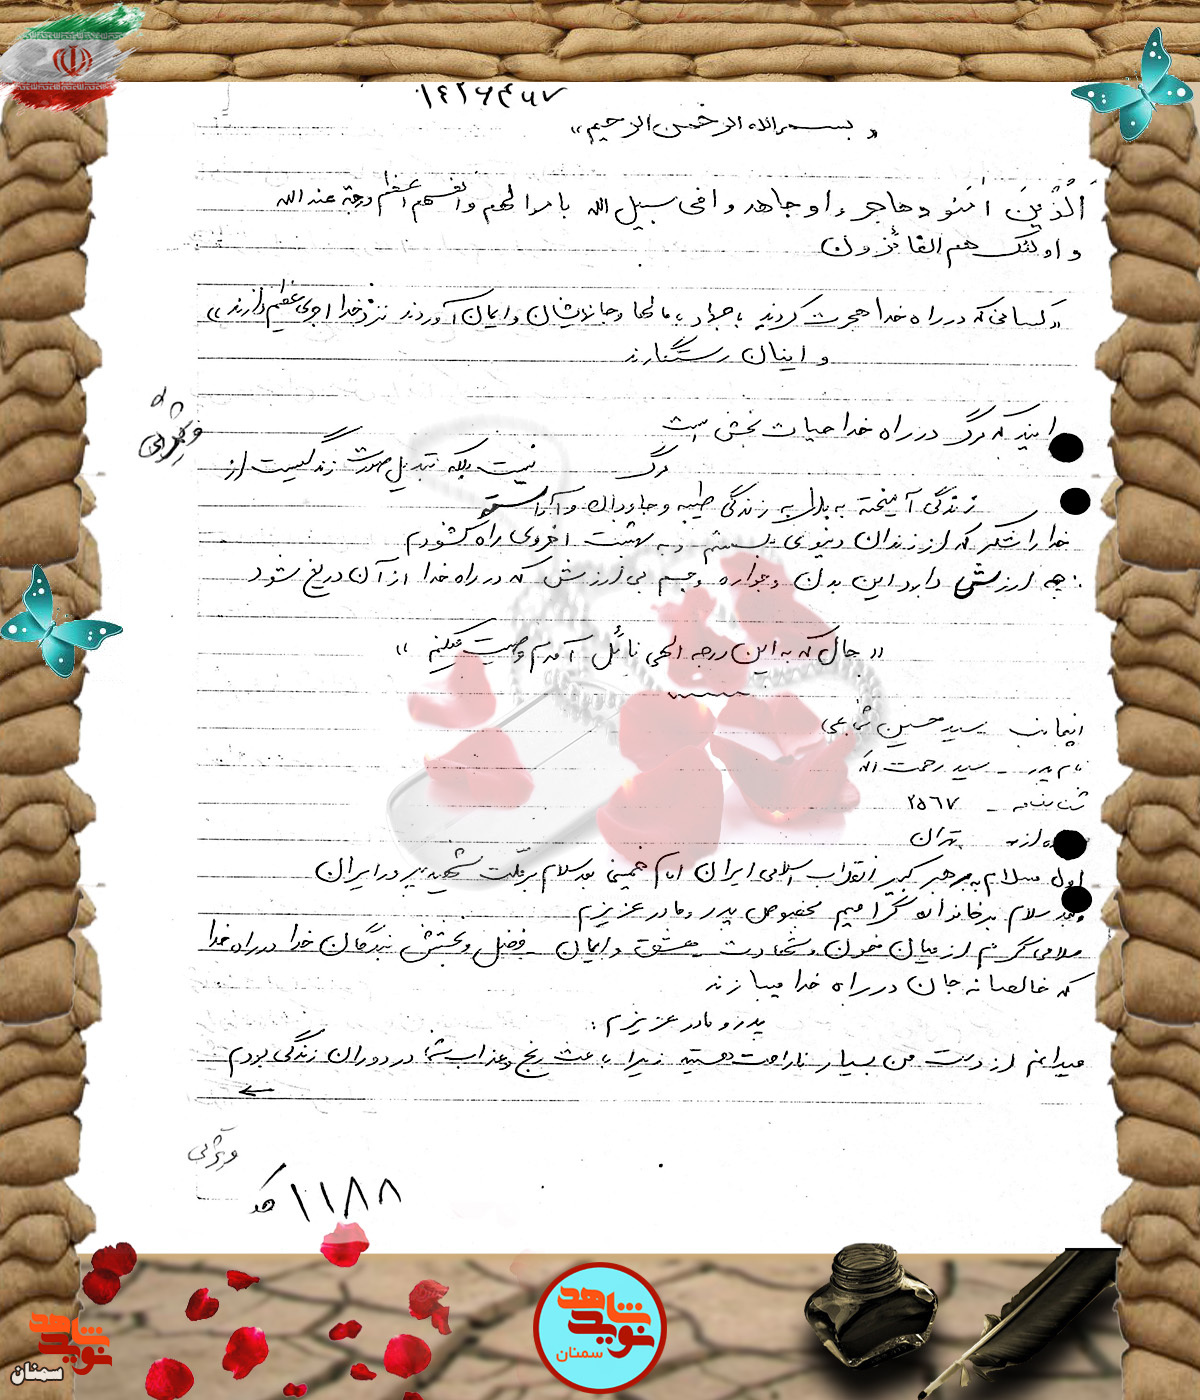 ۱۴۲۶۴۶۷
« بسم الله الرحمن الرحیم »
اَلَّذینَ امَنو و هاجرو او جاهدوا فی سبیل الله باموالهم و انفسهم اعظم درجة عند الله
و اولئک هم الفائزون
«کسانی که در راه خدا هجرت کردند با جهاد با مالها و جانهایشان و ایمان آوردند نزد خدا اجری عظیم دارند»
و اینان رستگارند
که مرگ در راه خدا حیات بخش است
مرگ نیست بلکه تبدیل صورت زندگیست از
زندگی آمیخته به به زندگی طیبه و جاودان و
خدا را شکر که از زندان دنیوی و به بهشت اخروی راه گشودم
چه ارزش دارد این بدن و جسم بی ارزش که در راه خدا از آن دریغ شود
« حال که به این درجه الهی نائل آمدم وصیت میکنم »
اینجانب سید حسین شجاعی
نام پدر - سید رحمت الله
شناسنامه - ۲۵۶۷
تهران
اول سلام به رهبر کبیر انقلاب اسلامی ایران امام خمینی بعد سلام بر ملت شهید پرور ایران
بعد سلام بر خانواده گرامیم بخصوص پدر و مادر عزیزم
سلامی گرم از میان خون و شهادت و عشق و ایمان بفضل و بخشش بندگان خدا در راه خدا
که خالصانه جان در راه خدا میبازند
پدر و مادر عزیزم :
میدانم از دست من بسیار ناراحت هستید زیرا باعث رنج و عذاب شما در دوران زندگی بودم
۱۱۸۸
شاهد
نوید
سمنان
شاهد
نوید
سمنان